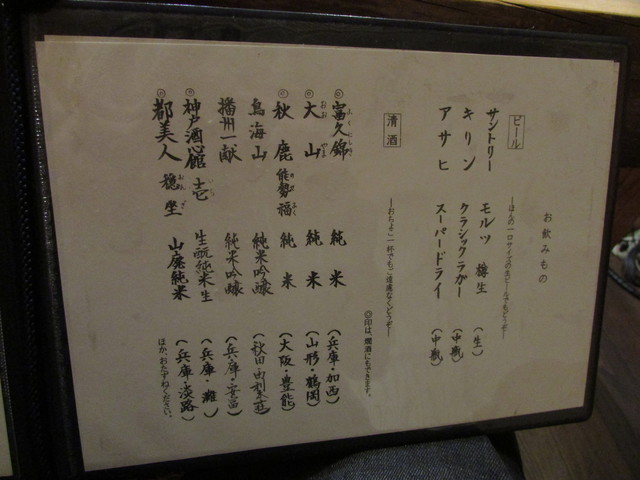 お飲みもの
ビール
―ほんの一口サイズの生ビールでもどうぞ―
サントリー モルツ 樽生 (生)
キリン クラシックラガー (中瓶)
アサヒ スーパードライ (中瓶)
清酒
―おちょこ一杯でもご遠慮なくどうぞ―
◎印は、燗酒にもできます。
◎富久錦 純米 (兵庫・加西)
◎大山 純米 (山形・鶴岡)
◎秋鹿 能勢福 純米 (大阪・豊能)
鳥海山 純米吟醸 (秋田・由利本荘)
播州一献 純米吟醸 (兵庫・宍粟)
◎神戸酒心館 壱 生酛純米生 (兵庫・灘)
◎都美人 穏坐 山廃純米 (兵庫・淡路)
ほか、おたずねください。